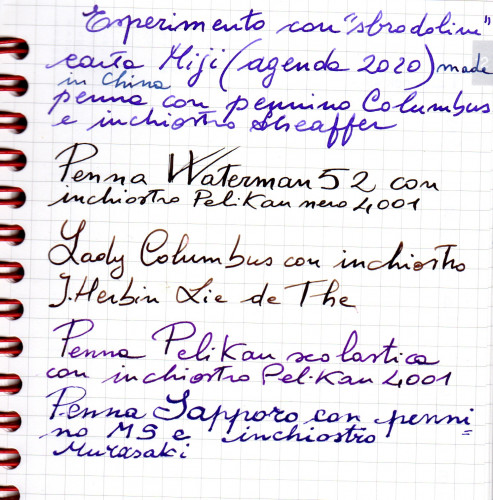 Esperimento con "sbrodoline"
carta Miji (agenda 2020) made
in China
penna con pennino Columbus
e inchiostro Sheaffer
Penna Waterman 52 con
inchiostro Pelikan nero 4001
Lady Columbus con inchiostro
J.Herbin Lie de The
Penna Pelikan scolastica
con inchiostro Pelikan 4001
Penna Sapporo con penni=
no MS e inchiostro
Murasaki